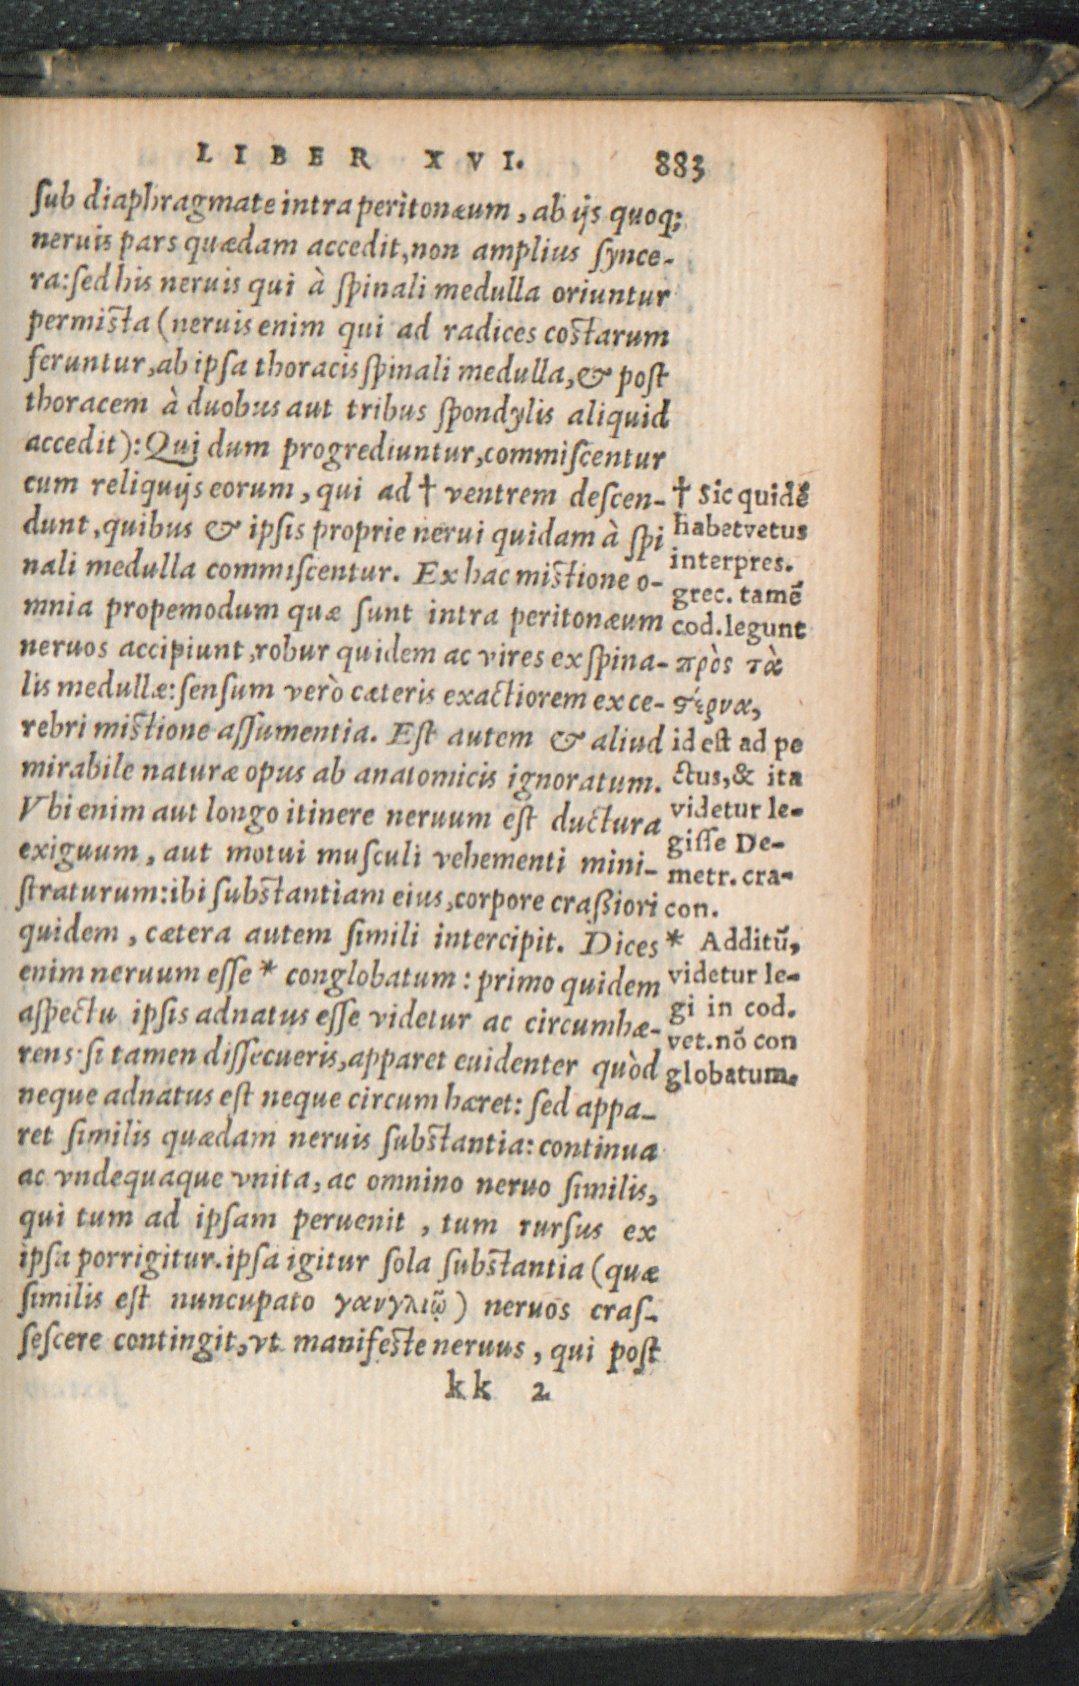 LIBER XVI. 883
sub diaphragmate intra peritonæum, ab ijs quoq;
neruis pars quædam accedit, non amplius synce-
ra: sed his neruis qui à spinali medulla oriuntur
permista (neruis enim qui ad radices costarum
feruntur, ab ipsa thoracis spinali medulla, & post
thoracem à duobus aut tribus spondylis aliquid
accedit): Qui dum progrediuntur, commiscentur
cum reliquijs eorum, qui ad † ventrem descen-
dunt, quibus & ipsis proprie nerui quidam à spi
nali medulla commiscentur. Ex hac mistione o-
mnia propemodum quæ sunt intra peritonæum
neruos accipiunt, robur quidem ac vires ex spina-
lis medullæ: sensum verò cæteris exactiorem ex ce-
rebri mistione assumentia. Est autem & aliud
mirabile naturæ opus ab anatomicis ignoratum.
Vbi enim aut longo itinere neruum est ductura
exiguum, aut motui musculi vehementi mini-
straturum: ibi substantiam eius, corpore craßiori
quidem, cætera autem simili intercipit. Dices
enim neruum esse * conglobatum: primo quidem
aspectu ipsis adnatus esse videtur ac circumhæ-
rens: si tamen dissecueris, apparet euidenter quòd
neque adnatus est neque circum hæret: sed appa-
ret similis quædam neruis substantia: continua
ac vndequaque vnita, ac omnino neruo similis,
qui tum ad ipsam peruenit, tum rursus ex
ipsa porrigitur. ipsa igitur sola substantia (quæ
similis est nuncupato γανγλιῷ) neruos cras-
sescere contingit, vt manifeste neruus, qui post
kk 2
† Sic quidẽ
habet vetus
interpres.
grec. tamẽ
cod. legunt
πρὸς τὰ
στέρνα,
id est ad pe
ctus, & ita
videtur le-
gisse De-
metr. cra-
con.
* Additũ,
videtur le-
gi in cod.
vet. nõ con
globatum.